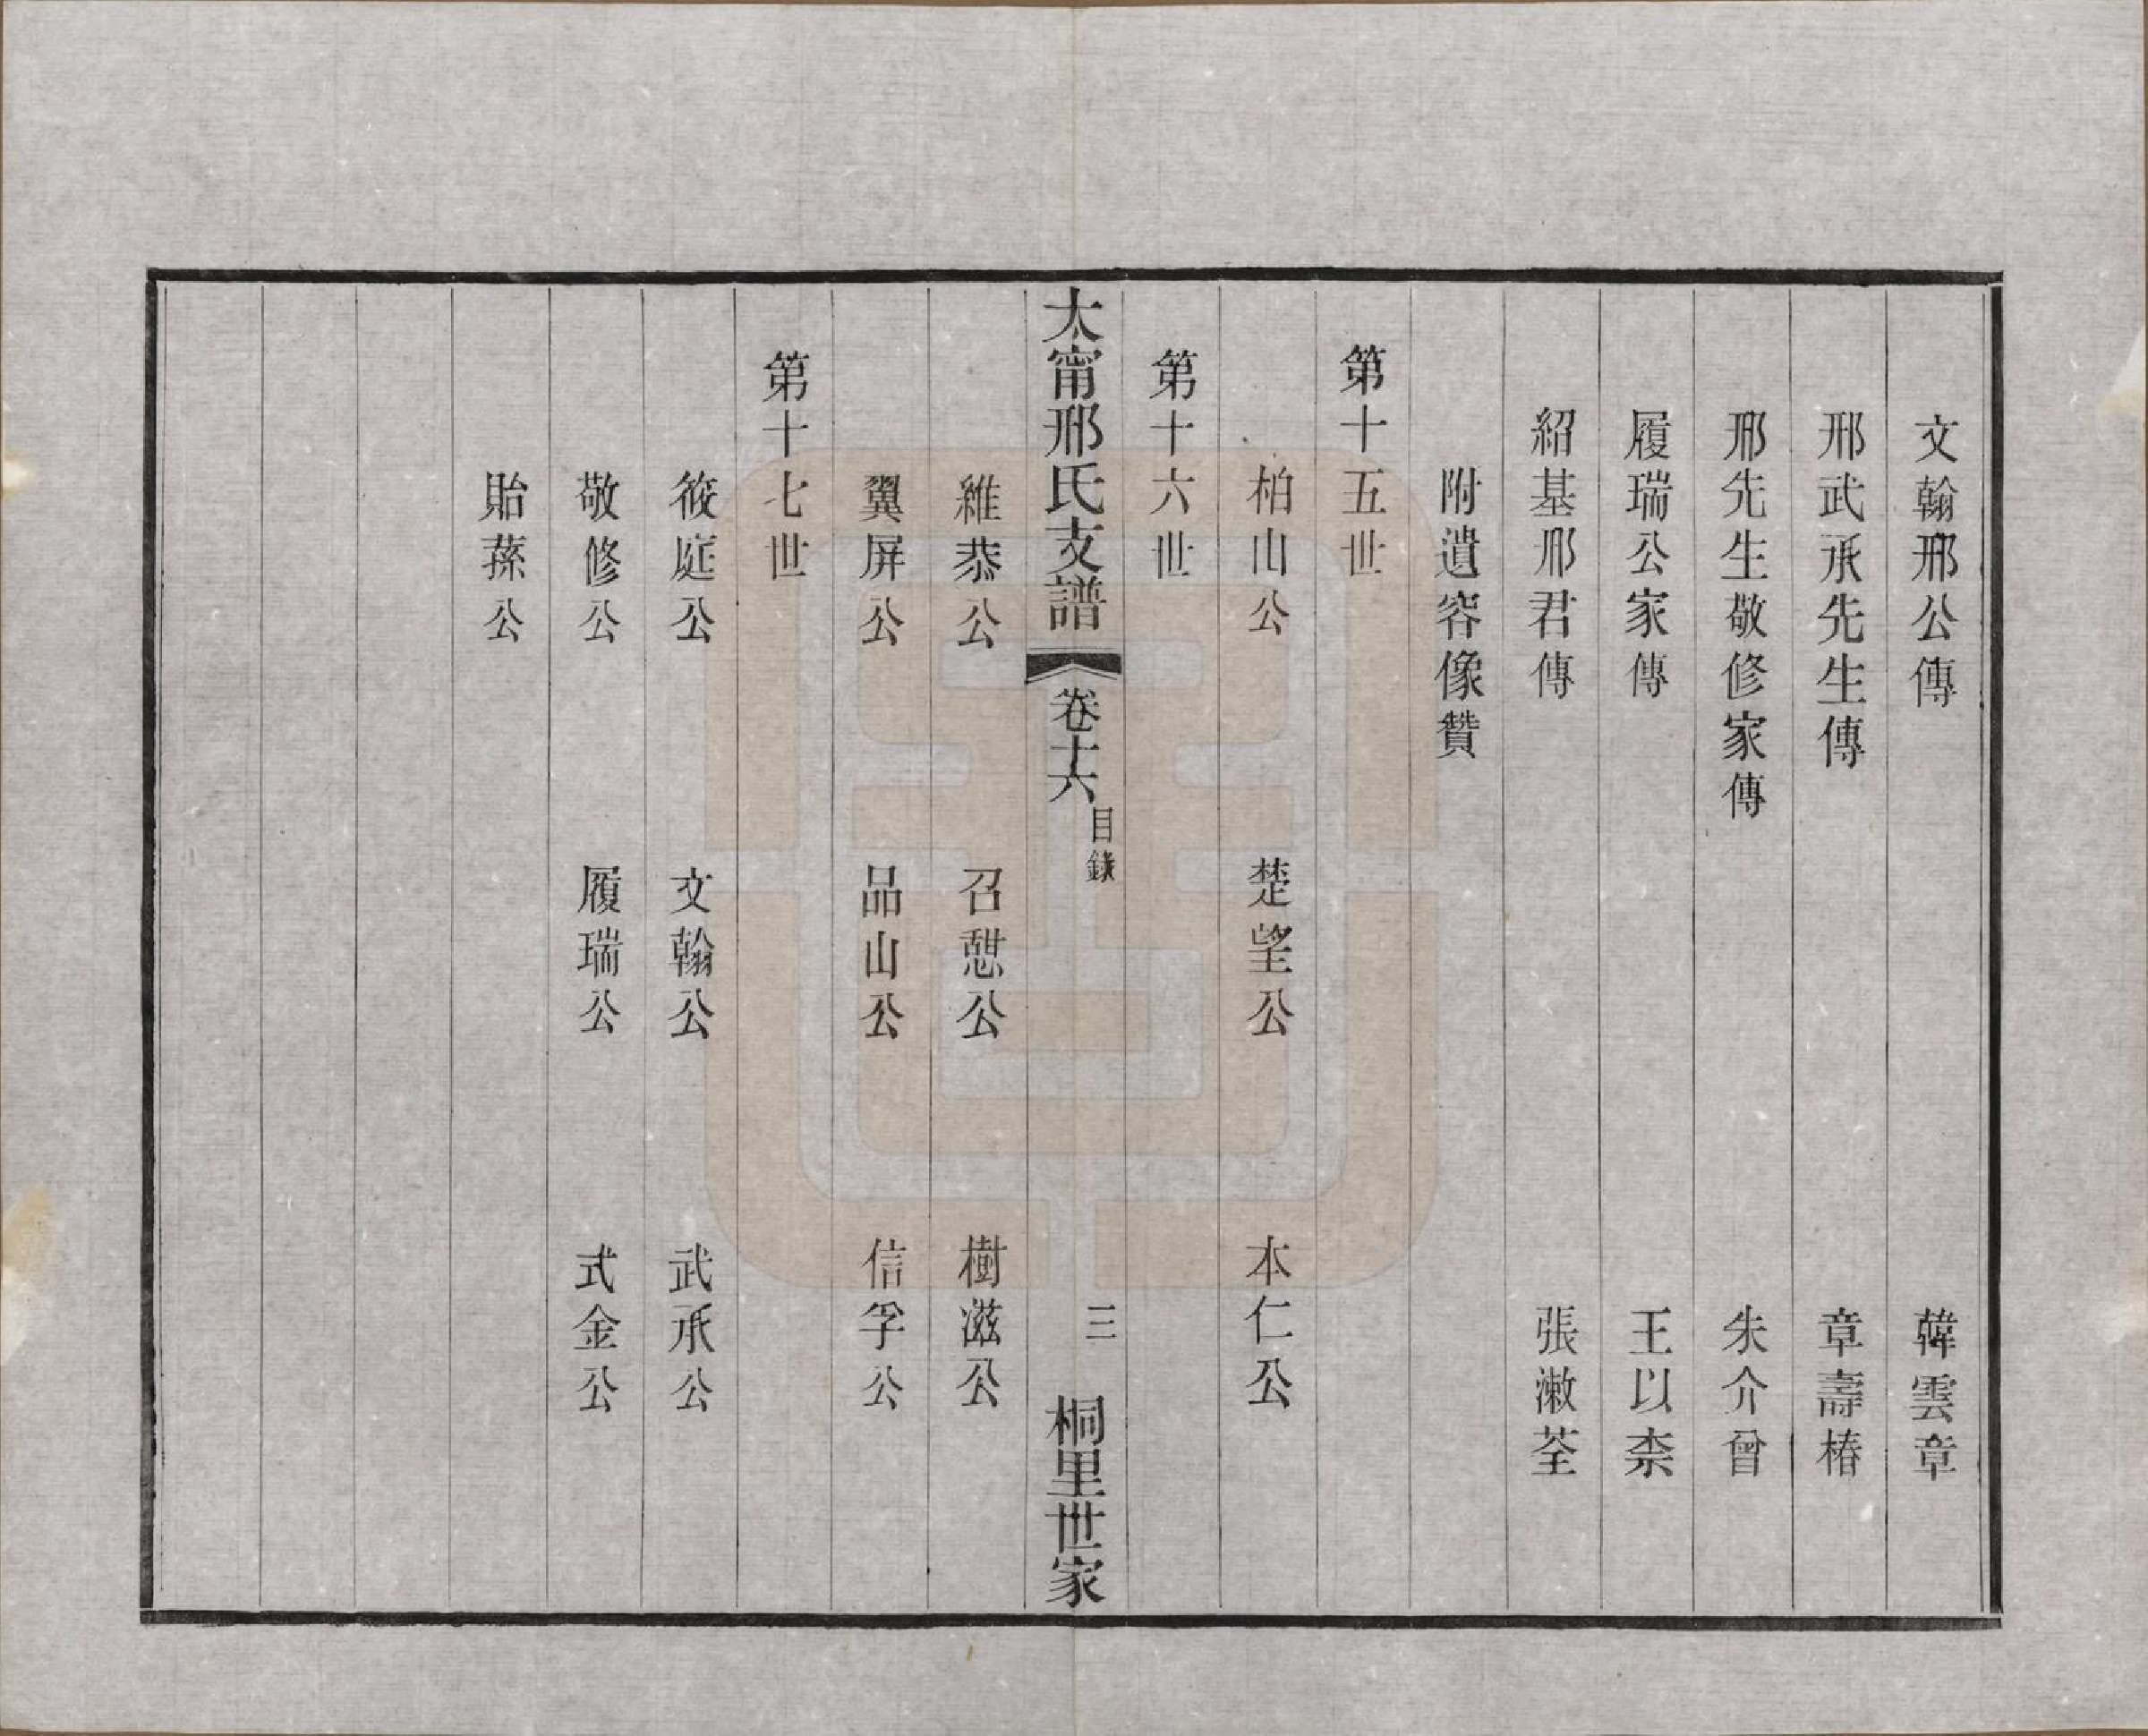 文翰邢公傳　韓雲章
邢武承先生傳　章壽椿
邢先生敬修家傳　朱介曾
履瑞公家傳　王以柰
紹基邢君傳　張漱荃
附遺容像贊
第十五世
柏山公　楚望公　本仁公
第十六世
太甯邢氏支譜　卷十六　目錄　三　桐里世家
維恭公　召憇公　樹滋公
翼屏公　品山公　信孚公
第十七世
筱庭公　文翰公　武承公
敬修公　履瑞公　式金公
貽蓀公